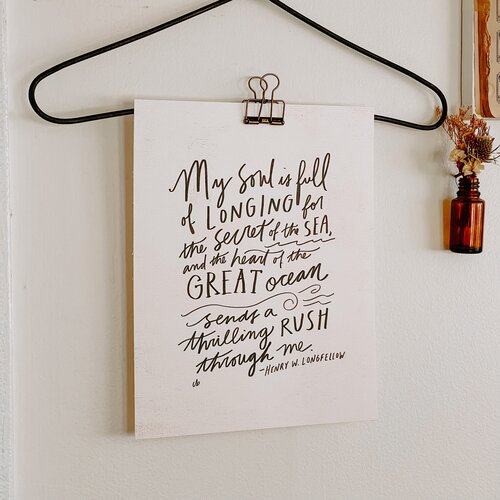 My Soul is full
of LONGING for
the Secret of the SEA,
and the heart of the
GREAT ocean
sends a
thrilling RUSH
through me.
-HENRY W. LONGFELLOW